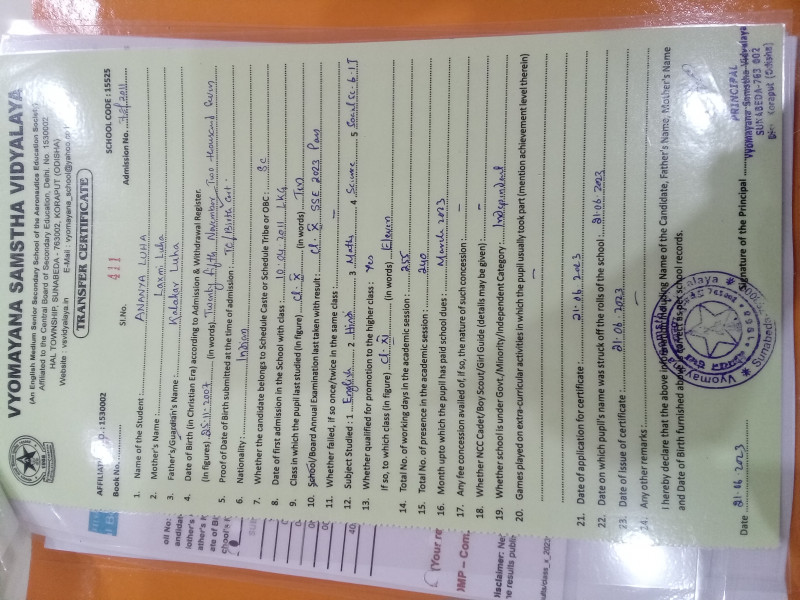 VYOMAYANA SAMSTHA VIDYALAYA
(An English Medium Senior Secondary School of the Aeronautice Education Society)
Affiliated to the Central Board of Secondary Education, Delhi, No. 1530002,
HAL TOWNSHIP, SUNABEDA - 763002, KORAPUT (ODISHA)
Website : vsvidyalaya.in E-Mail : vyomayana_school@yahoo.in
TRANSFER CERTIFICATE
AFFILIATION NO. : 1530002 SCHOOL CODE : 15525
Book No. Sl.No. 411 Admission No. 78/2011
1. Name of the Student : ANANYA LUHA
2. Mother's Name Laxmi Luha
3. Father's/Guardian's Name : Kalakar Luha
4. Date of Birth (in Christian Era) according to Admission & Withdrawal Register.
(In figures) 25.11.2007 (In words) Twenty fifth November Two thousand Seven
5. Proof of Date of Birth submitted at the time of admission : TC/Birth Cert.
6. Nationality : Indian
7. Whether the candidate belongs to Schedule Caste or Schedule Tribe or OBC : SC
8. Date of first admission in the School with class : 10.04.2011 LKG
9. Class in which the pupil last studied (in figure) Cl. X (in words) Ten
10. School/Board Annual Examination last taken with result : Cl. X SSE 2023 Pass
11. Whether failed, if so once/twice in the same class : –
12. Subject Studied : 1 English 2 Hindi 3 Maths 4 Science 5 Social Sc. 6. IT
13. Whether qualified for promotion to the higher class : Yes
If so, to which class (in figure) Cl. XI (in words) Eleven
14. Total No. of working days in the academic session : 255
15. Total No. of presence in the academic session : 240
16. Month upto which the pupil has paid school dues : March 2023
17. Any fee concession availed of, if so, the nature of such concession : –
18. Whether NCC Cader/Boy Scout/Girl Guide (details may be given) : –
19. Whether school is under Govt./Minority/Independent Category : Independent
20. Games played on extra-curricular activities in which the pupil usually took part (mention achievement level therein)
–
21. Date of application for certificate : 21.06.2023
22. Date on which pupil's name was struck off the rolls of the school : 21.06.2023
23. Date of issue of certificate : 21.06.2023
24. Any other remarks : –
I hereby declare that the above information including Name of the Candidate, Father's Name, Mother's Name
and Date of Birth furnished above is correct as per school records.
Date 21.06.2023 Signature of the Principal
PRINCIPAL
Vyomayana Samstha Vidyalaya
SUNABEDA-763 002
Dist. Koraput (Odisha)
(Your re
OMP – Com
isclaimer: Ne
he results publi